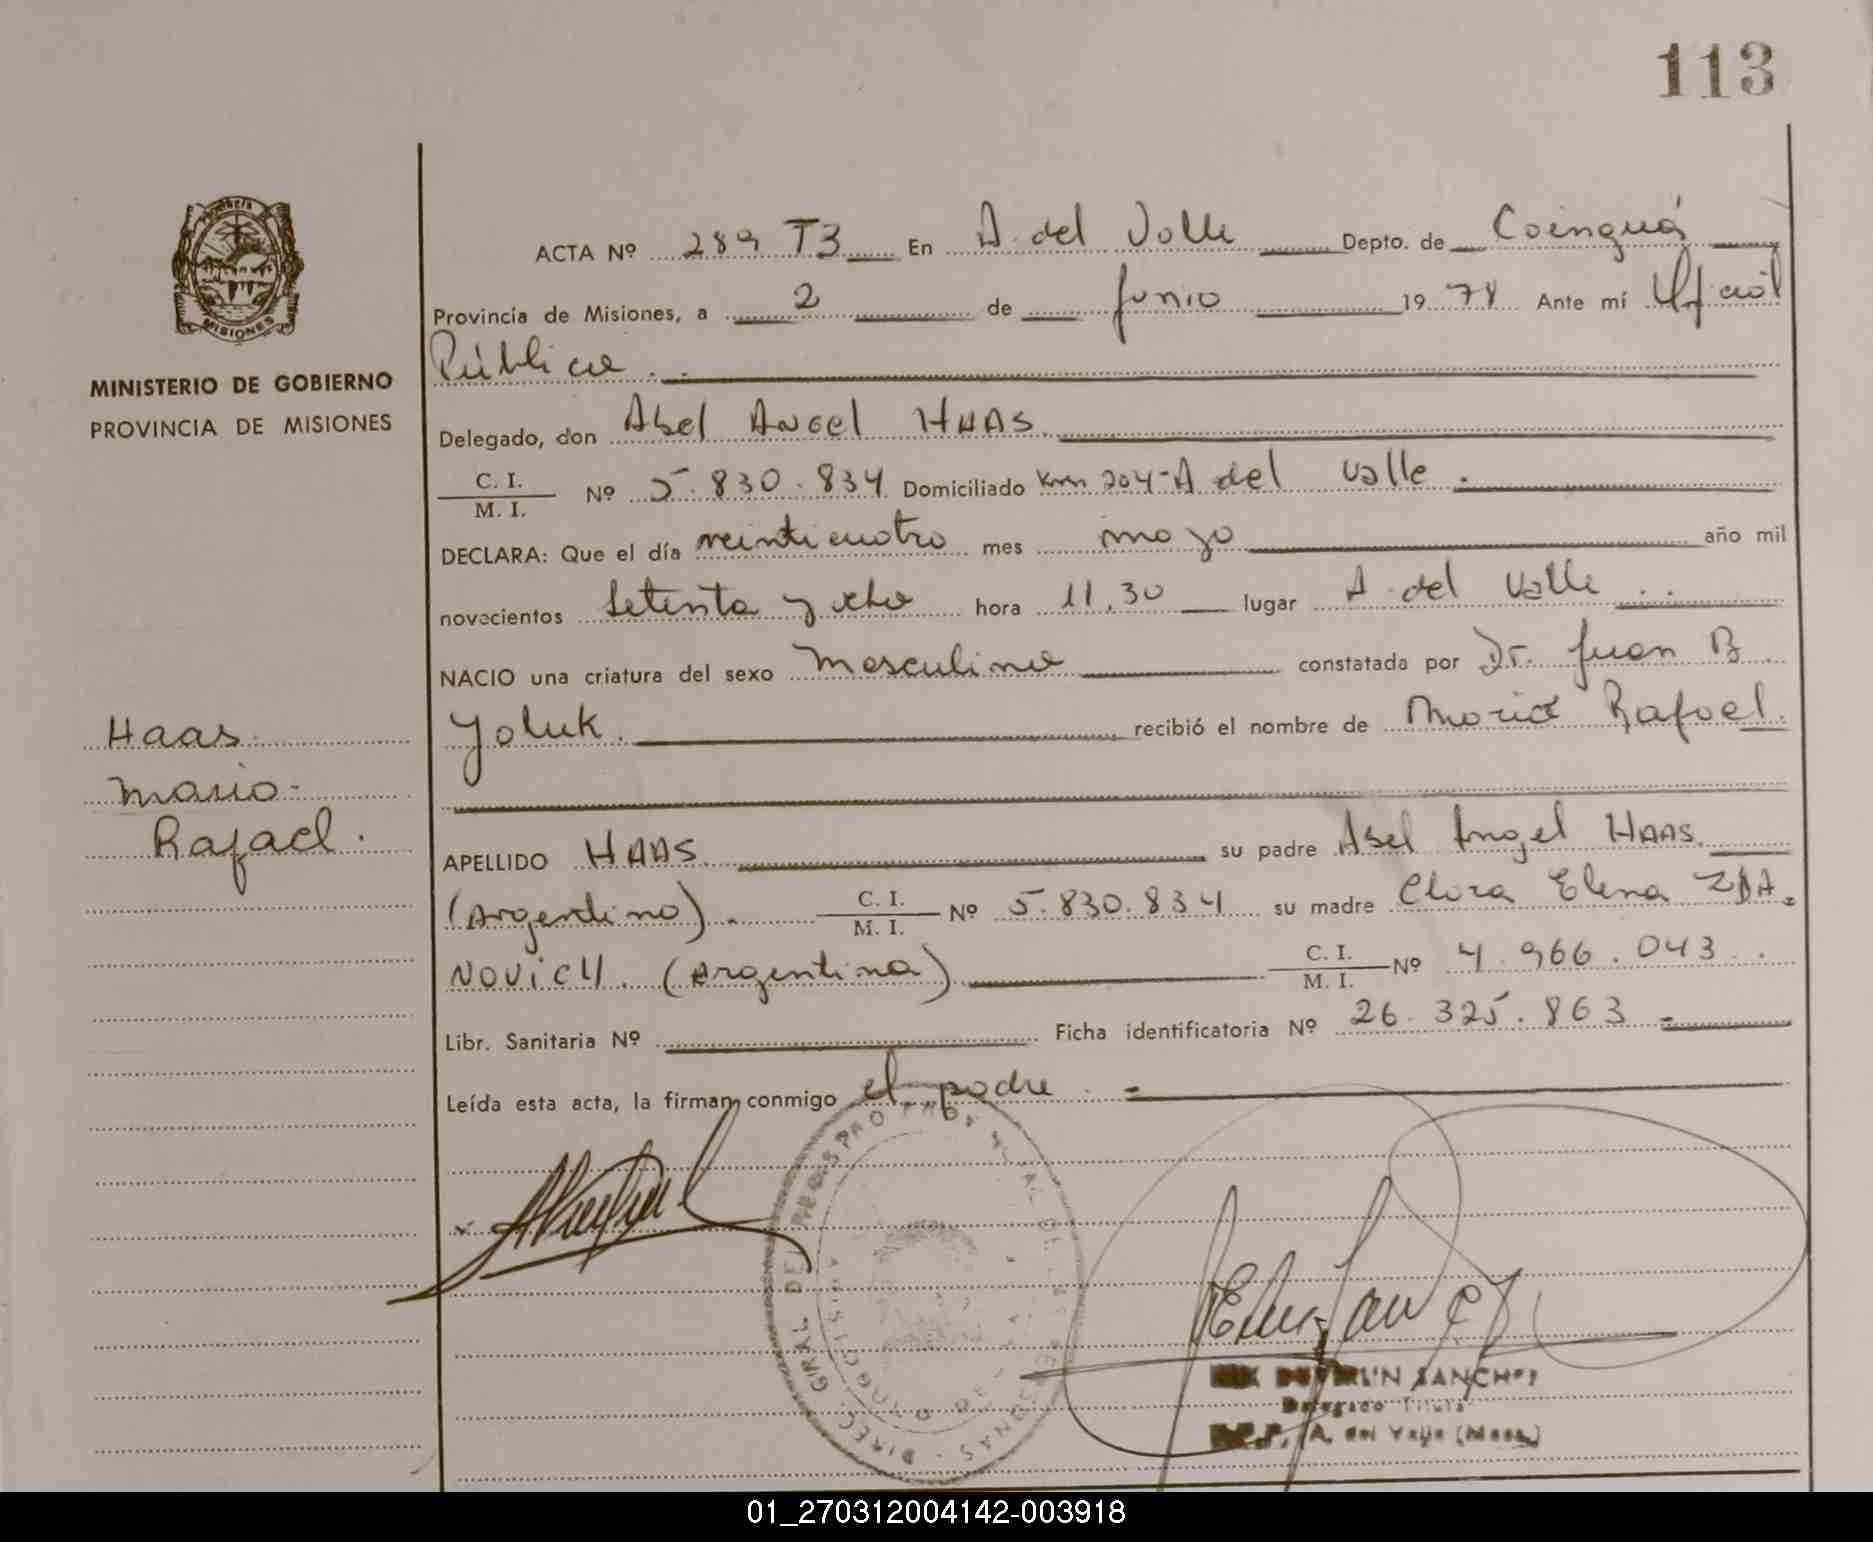 113
MISIONES
MINISTERIO DE GOBIERNO
PROVINCIA DE MISIONES
Haas
Mario
Rafael.
ACTA Nº 289 T3 En A. del Valle Depto. de Cainguás
Provincia de Misiones, a 2 de Junio 1978 Ante mí Oficial
Público.
Delegado, don Abel Angel HAAS
C. I. / M. I. Nº 5.830.834 Domiciliado Km 204-A del Valle.
DECLARA: Que el día veinticuatro mes mayo año mil
novecientos setenta y ocho hora 11,30 lugar A. del Valle
NACIO una criatura del sexo masculino constatada por Dr. Juan B.
Yoluk. recibió el nombre de Mario Rafael.
APELLIDO HAAS su padre Abel Angel HAAS.
(Argentino). C. I. / M. I. Nº 5.830.834 su madre Clara Elena ZDA-
NOVICH. (Argentina) C. I. / M. I. Nº 4.966.043.
Libr. Sanitaria Nº Ficha identificatoria Nº 26.325.863
Leída esta acta, la firman conmigo el padre
SANCHEZ
Delegado Titular
A. del Valle (Mnes.)
01_270312004142-003918